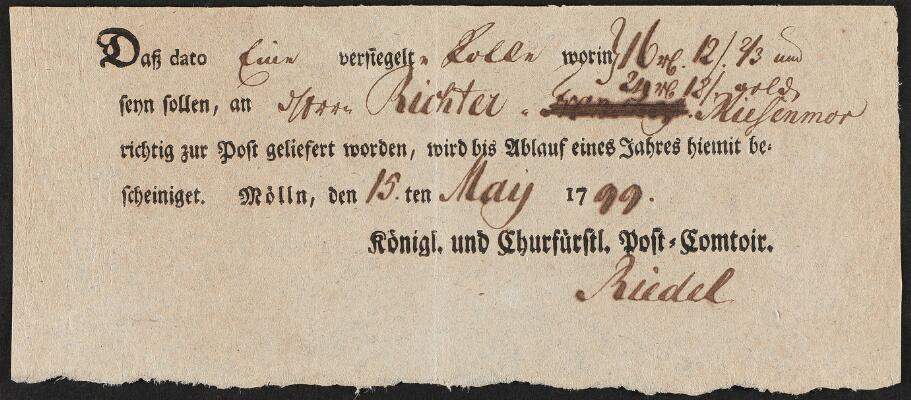 Daß dato Eine versiegelte Rolle worin 316 rℓ. 12 ſ. 2/3 und
24 rℓ 12 ſ. gold
seyn sollen, an Herrn Richter Miesenmor
richtig zur Post geliefert worden, wird bis Ablauf eines Jahres hiemit be⸗
scheiniget. Mölln, den 15. ten May 1799.
Königl. und Churfürstl. Post⸗Comtoir.
Riedel